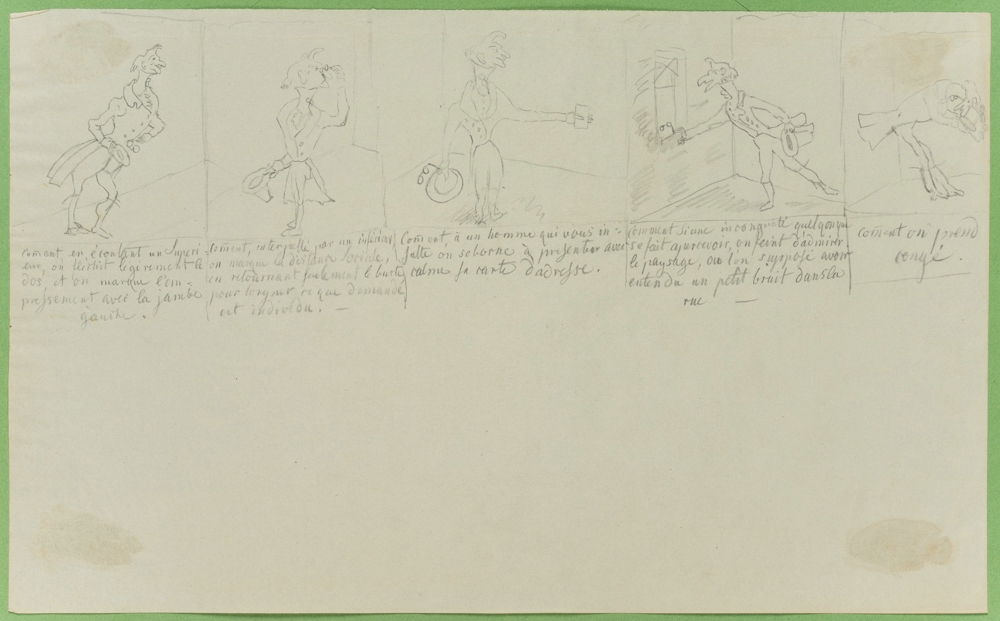 Coment, en écoutant un Supéri=
eur, on fléchit légèrement le
dos et on marque l'em-
pressement avec la jambe
gauche.
Coment, interpellé par un inférieur,
on marque la distance sociale,
en retournant seulement le buste
pour lorgner ce que demande
cet individu. —
Coment, à un homme qui vous in=
sulte on se borne à présenter avec
calme sa carte d'adresse.
Comment si une incongruité quelconque
se fait apercevoir, on feint d'admirer
le paysage, ou l'on suppose avoir
entendu un petit bruit dans la
rue —
Coment on prend
congé.